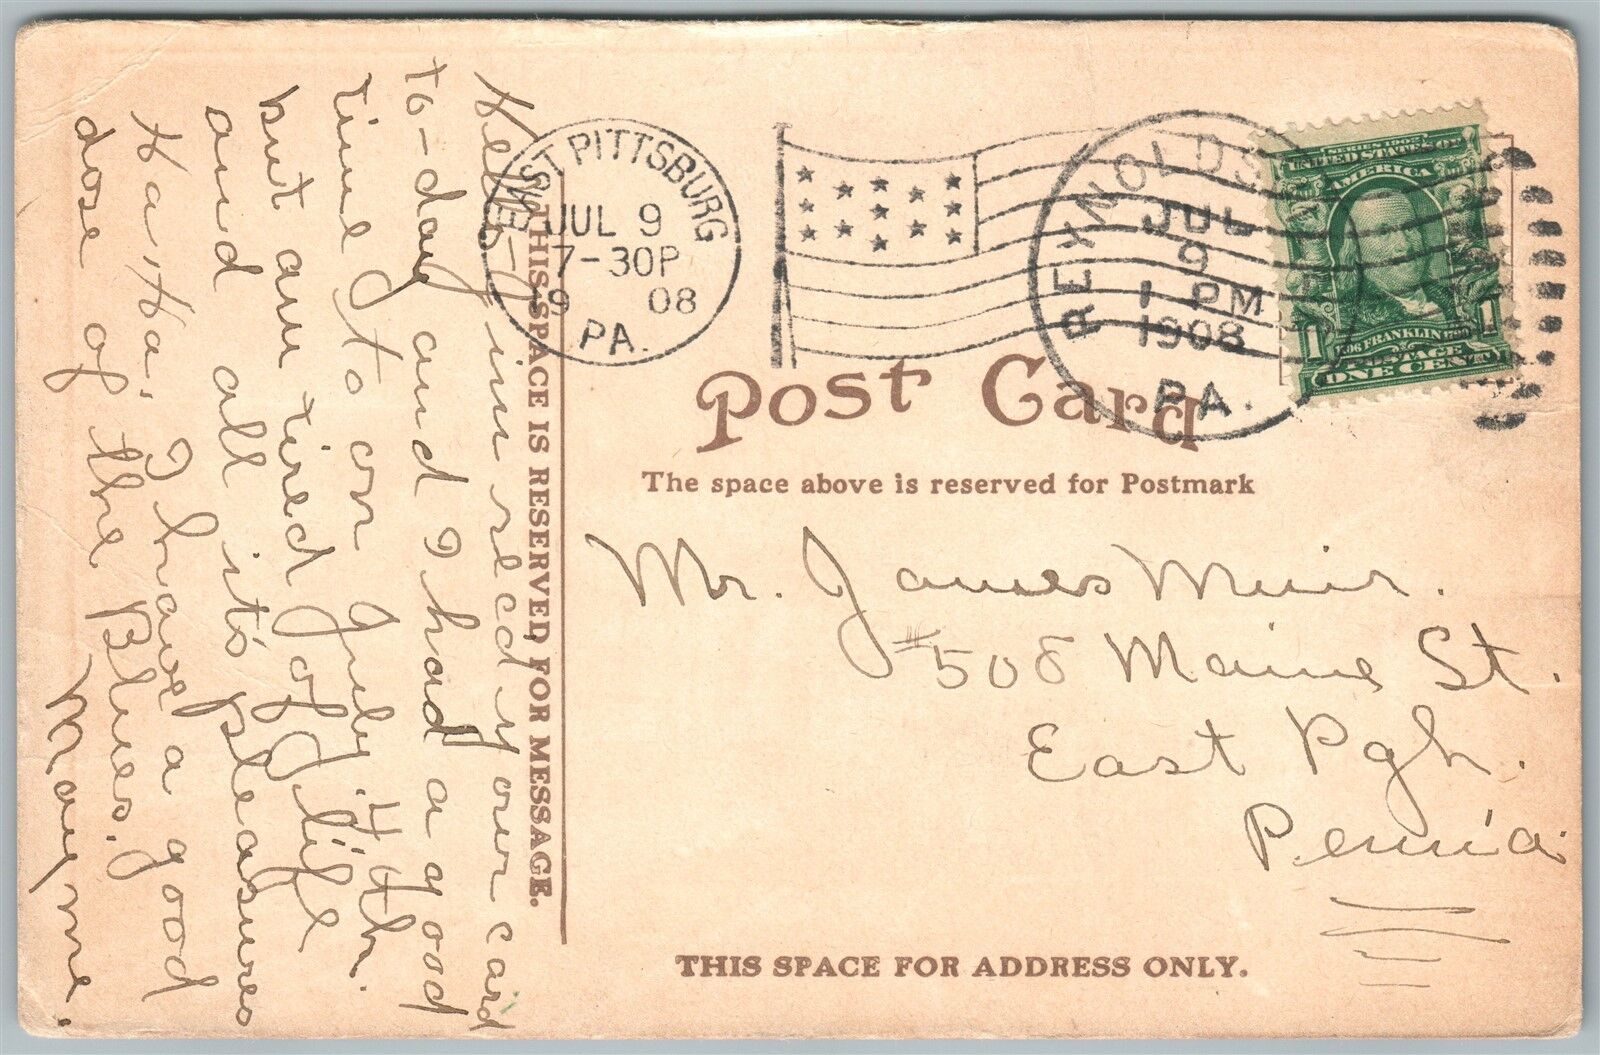 Hello-Jim recd your card
to-day and I had a good
time Ito on July. 4th.
but am tired of life
and all it's pleasures
Ha! Ha! I have a good
dose of the Blues.
Mayme.
THIS SPACE IS RESERVED FOR MESSAGE.
EAST PITTSBURG
JUL 9
7-30P
9 08
PA.
REYNOLDS
JUL
9
1 PM
1908
PA.
SERIES 1902
UNITED STATES OF
AMERICA
1706 FRANKLIN 1790
1 1
POSTAGE
ONE CENT
Post Card
The space above is reserved for Postmark
Mr. James Muir.
#508 Maine St.
East Pgh.
Penn'a.
THIS SPACE FOR ADDRESS ONLY.